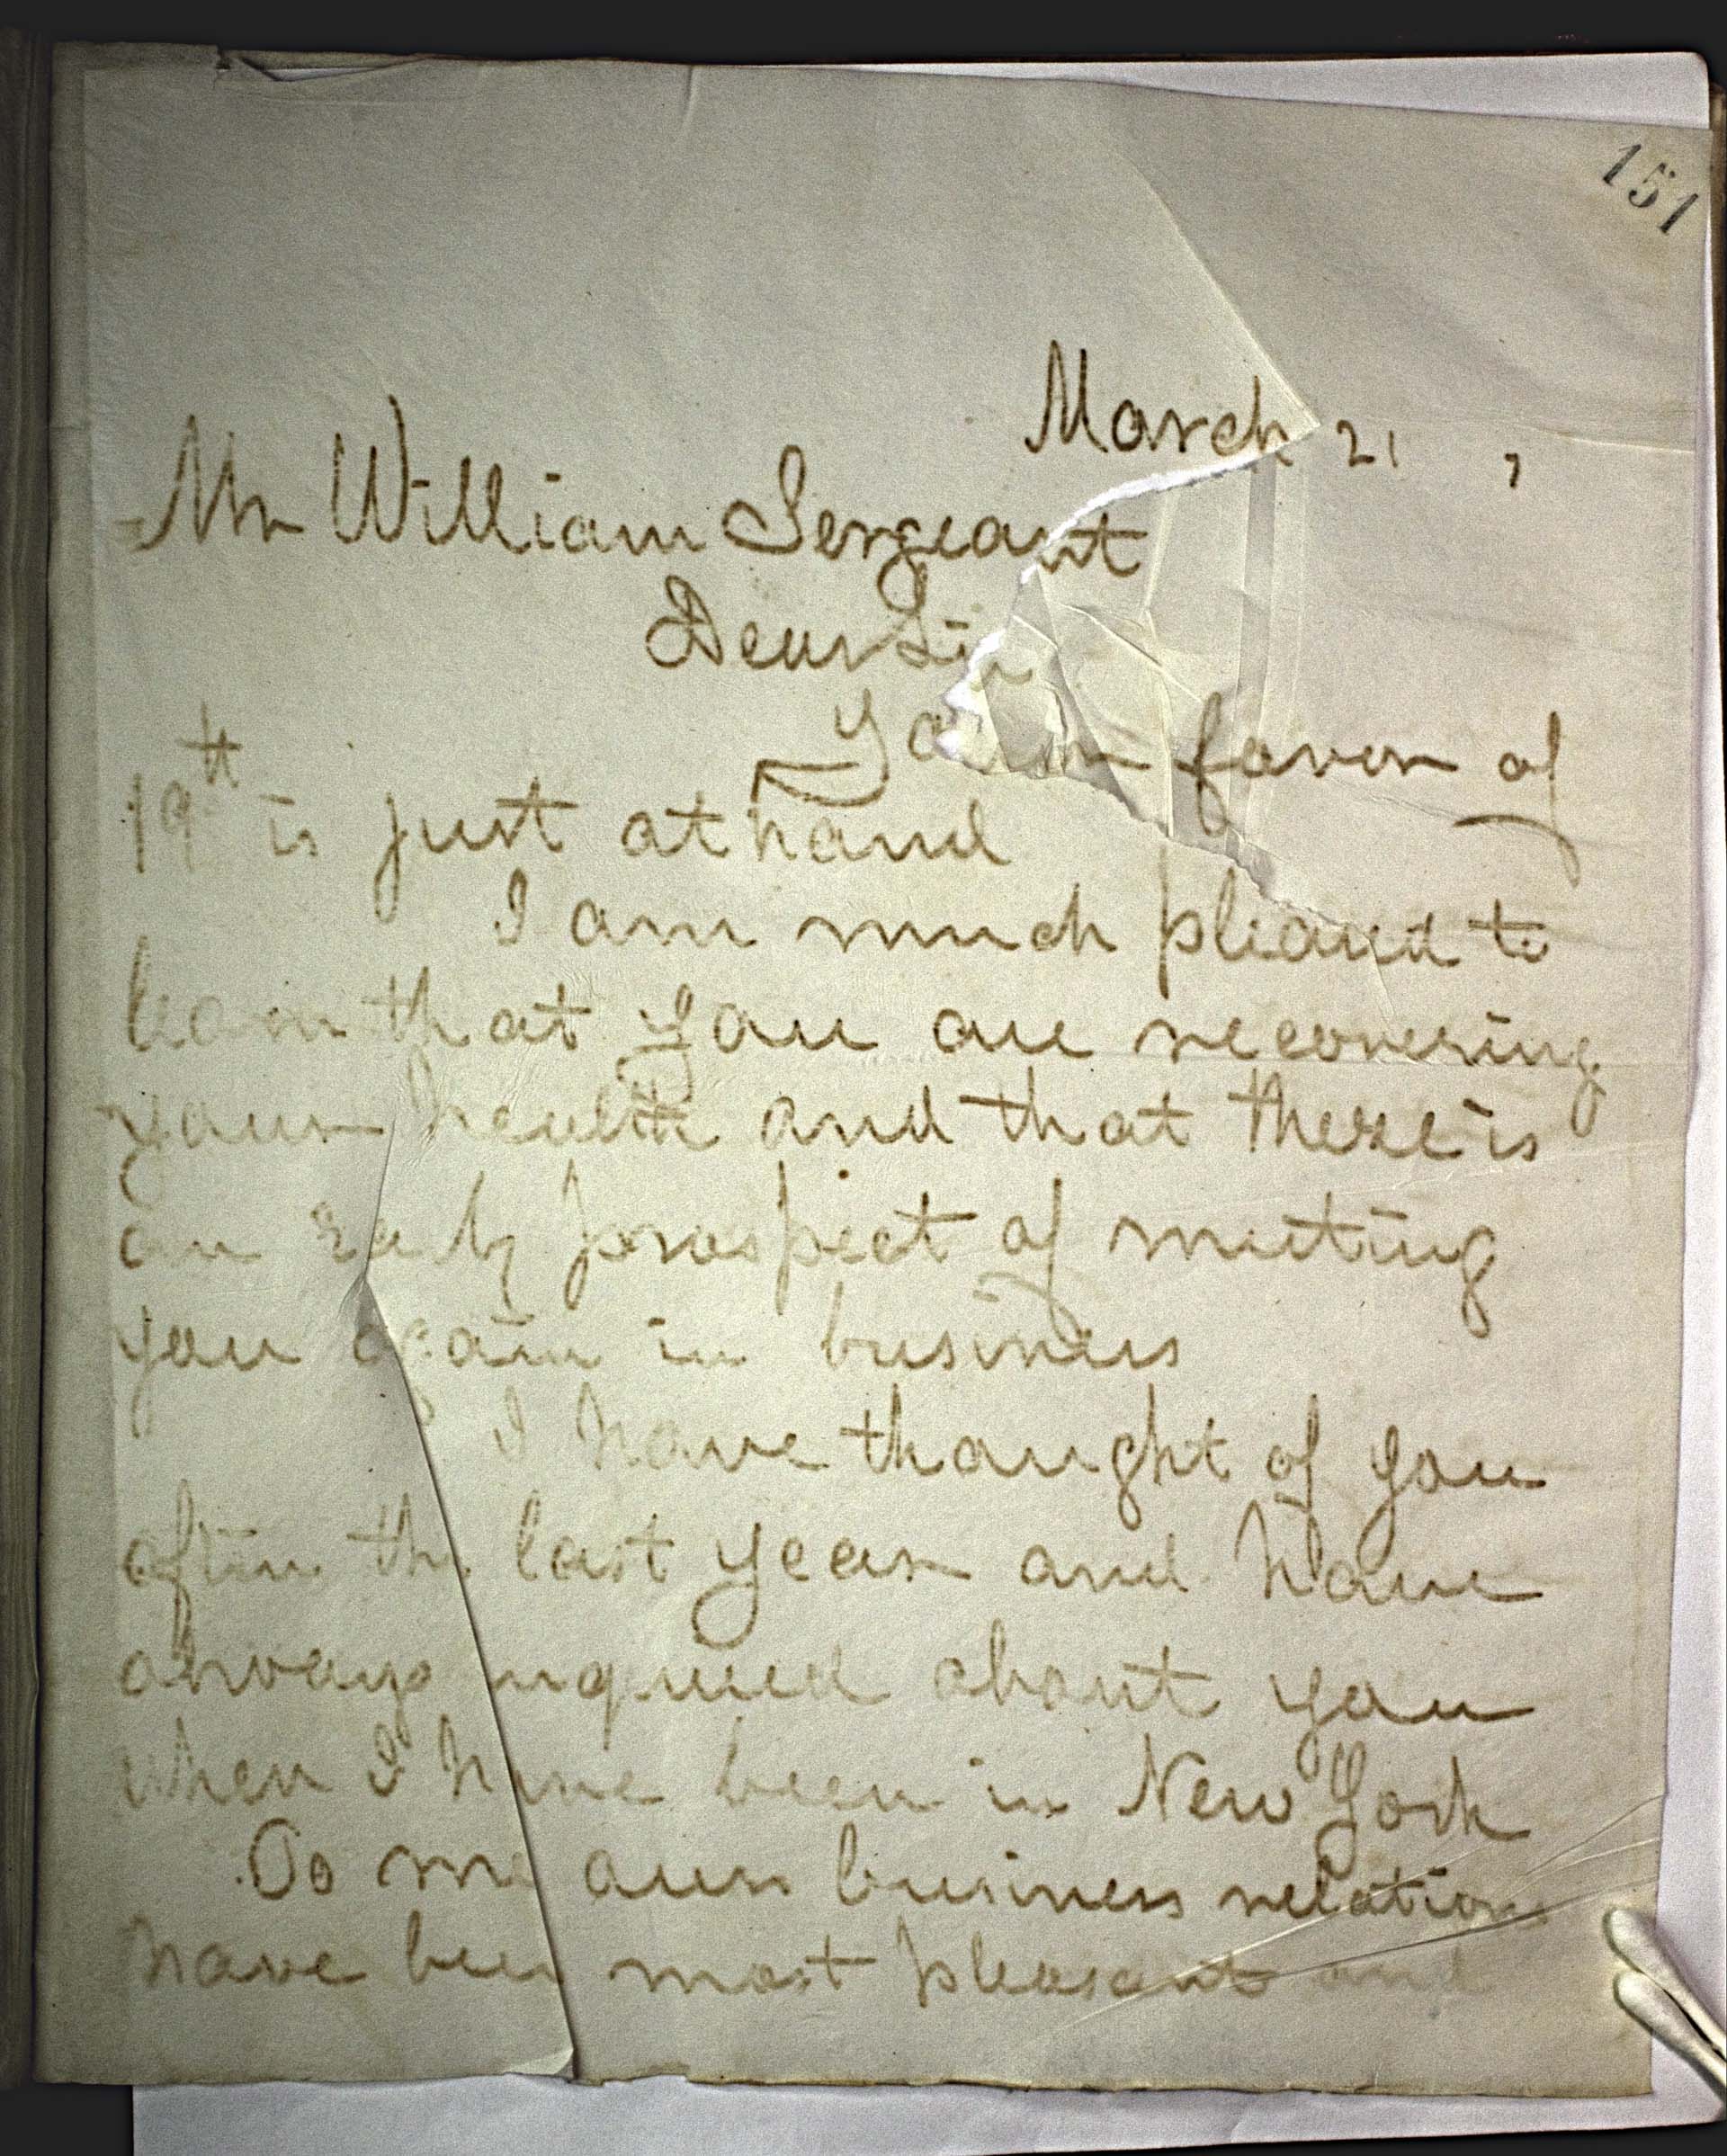 151
March 21,
Mr William Sergeant
Dear Sir
Your favor of
19th is just at hand
I am much pleased to
learn that you are recovering
your health and that there is
an early prospect of meeting
you again in business
I have thought of you
often the last year and have
always inquired about you
when I have been in New York
To me our business relations
have been most pleasant and